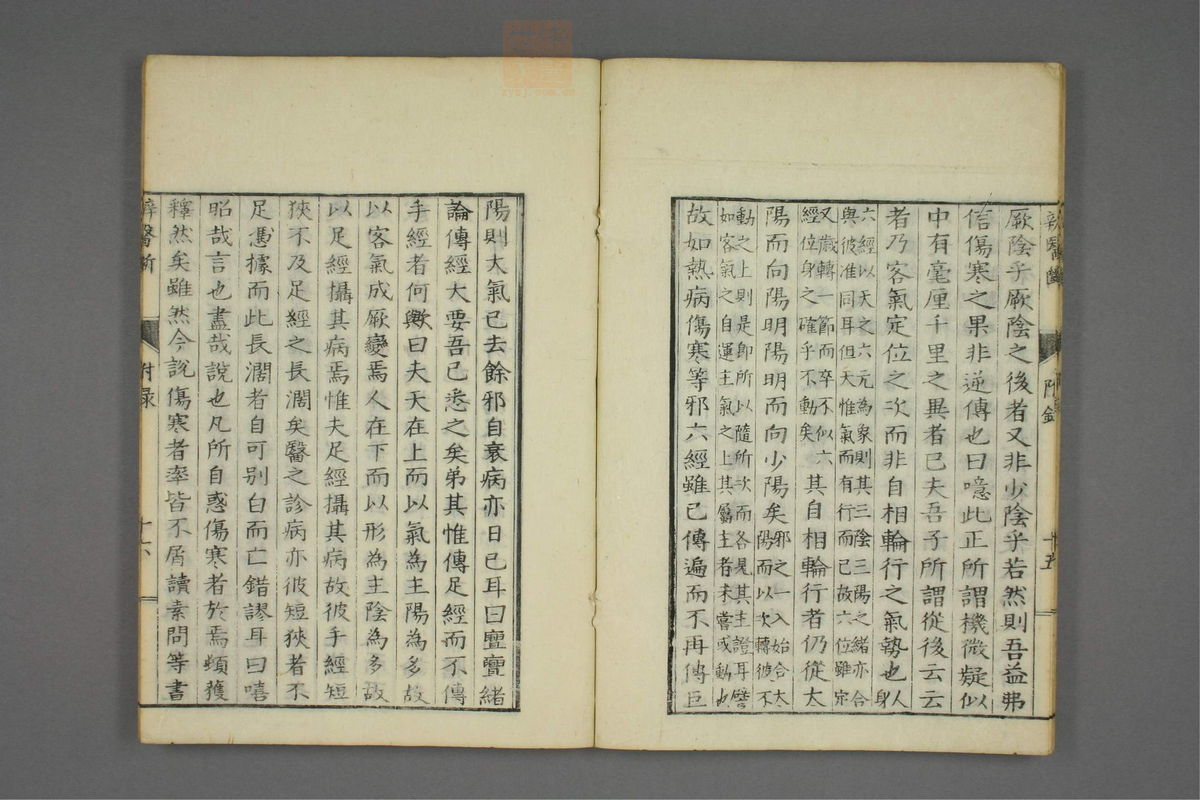 厥陰乎厥陰之後者又非少陰乎若然則吾益弗
信傷寒之果非逆傳也曰噫此正所謂機微疑似
中有毫厘千里之異者已夫吾子所謂從後云云
者乃客氣定位之次而非自相輪行之氣勢也人身
六經以天之六元為象則其三陰三陽之緒亦合
與彼准同耳但天惟氣而有行而已故六位雖定
又歲轉一節而卒不似六
經位身之確乎不動矣
其自相輪行者仍從太
陽而向陽明陽明而向少陽矣
邪之一入始合太
陽而以次轉彼不
動之上則是即所以隨所次而各見其主證耳譬
如客氣之自運主氣之上其屬主者未嘗或動也
故如熱病傷寒等邪六經雖已傳遍而不再傳巨
附錄
十五
陽則大氣已去餘邪自衰病亦日已耳曰亹亹緒
論傳經大要吾已悉之矣弟其惟傳足經而不傳
手經者何歟曰夫天在上而以氣為主陽為多故
以客氣成厥變焉人在下而以形為主陰為多故
以足經攝其病焉惟夫足經攝其病故彼手經短
狹不及足經之長濶矣醫之診病亦彼短狹者不
足憑據而此長濶者自可別白而亡錯謬耳曰嘻
昭哉言也盡哉說也凡所自惑傷寒者於焉頓獲
釋然矣雖然今說傷寒者率皆不屑讀素問等書
附錄
十六